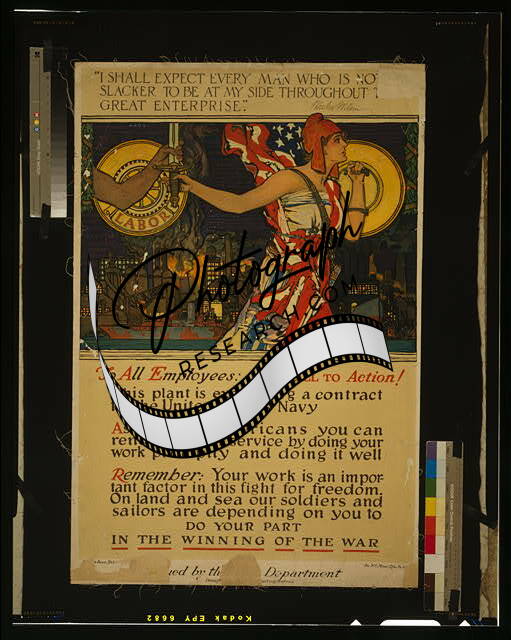 "I SHALL EXPECT EVERY MAN WHO IS NO
SLACKER TO BE AT MY SIDE THROUGHOUT
GREAT ENTERPRISE."
LABOR
Photograph
RESEARCH.COM
To All Employees: TO Action!
this plant is a contract
the Navy
you can
service by doing your
work and doing it well
Remember: Your work is an impor-
tant factor in this fight for freedom.
On land and sea our soldiers and
sailors are depending on you to
DO YOUR PART
IN THE WINNING OF THE WAR
by the Department
Kodak EPY 6682